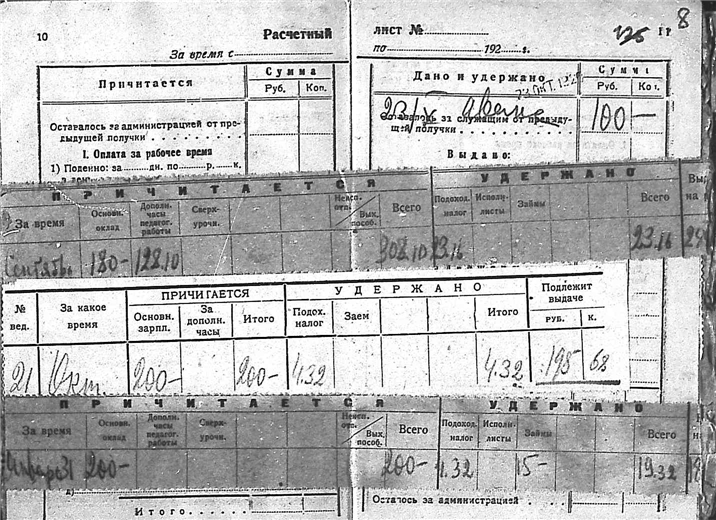 10 Расчетный лист № 125 ГГ 8
За время с по 192 г.
Причитается Сумма Руб. Коп.
Дано и удержано Сумма Руб. Коп.
Оставалось за администрацией от предыдущей получки
I. Оплата за рабочее время
1) Поденно: за дн. по р. к.
20/X Аванс 100—
Оставалось за служащим от предыдущей получки
Выдано:
ПРИЧИТАЕТСЯ УДЕРЖАНО
За время Основн. оклад Дополн. часы педагог. работы Сверхурочн. Вых. пособ. Всего Подоход. налог Исполн. листы Займы Всего
Сентябрь 180— 128.10 308.10 23.16 23.16
ПРИЧИТАЕТСЯ УДЕРЖАНО Подлежит выдаче
№ вед. За какое время Основн. зарпл. За дополн. часы Итого Подох. налог Заем Итого РУБ. К.
21 Окт. 200— 200— 4.32 4.32 195 68
ПРИЧИТАЕТСЯ УДЕРЖАНО
За время Основн. оклад Дополн. часы педагог. работы Сверхурочн. Вых. пособ. Всего Подоход. налог Исполн. листы Займы Всего
200— 200— 4.32 15— 19.32
Итого
Осталось за администрацией